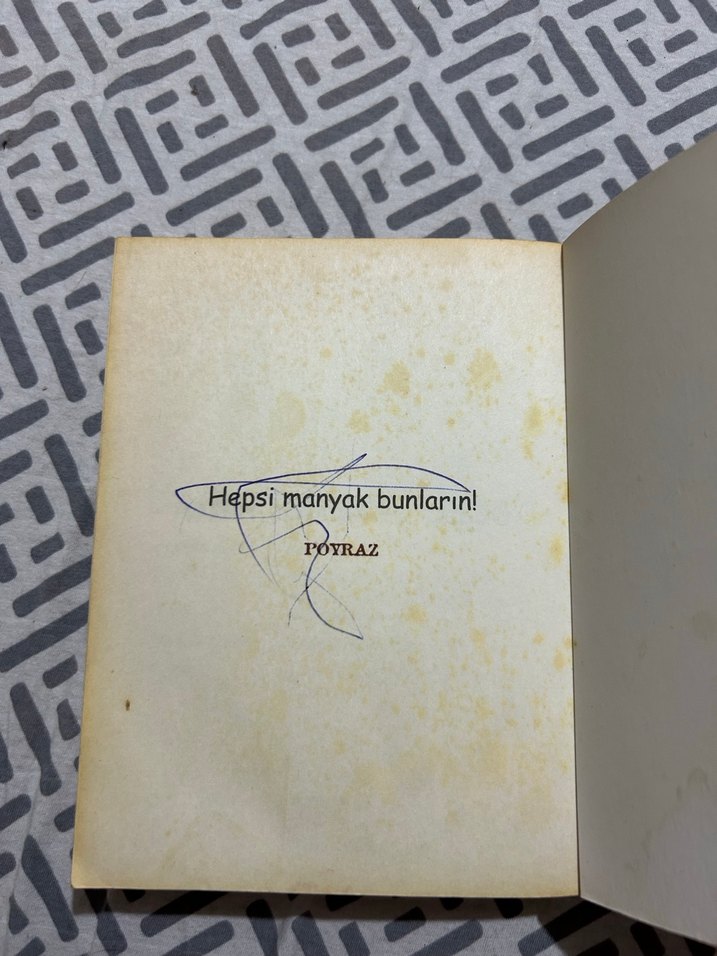 Hepsi manyak bunların!
POYRAZ